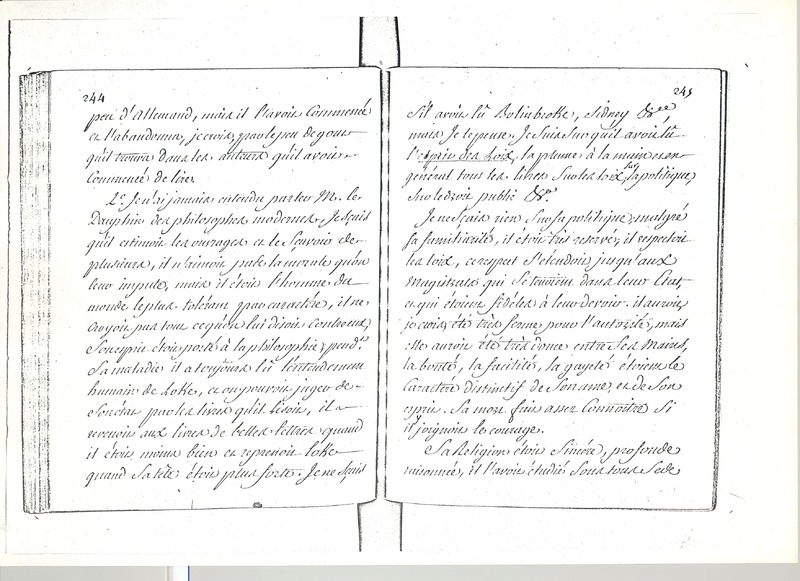 244
peu d'Allemand, mais il l'avoit Commencé
et l'abandonna, je crois, par le peu de gout
qu'il trouva dans les auteurs qu'il avoit
Commencé de lire.
2.º Je n'ai jamais entendu parler M. le
Dauphin des philosophes modernes, Je sçais
qu'il estimoit les ouvrages et le Sçavoir de
plusieurs, il n'aimoit pas la morale qu'on
leur impute, mais il étoit l'homme du
monde le plus tolérant par caractére, il ne
croyoit pas tout ce qu'on lui disoit contr'eux,
Son esprit étoit porté à la philosophie; pend.t
Sa maladie il a toujours lû l'entendement
humain de Loke, et on pouvoit juger de
Son état par les livres qu'il lisoit, il
revenoit aux livres de belles lettres quand
il étoit moins bien et reprenoit loke
quand Sa tête étoit plus forte. Je ne Sçais
245
S'il avoit lû Bolinbroke, Sidney &ca
mais Je le pense. Je Suis Sur qu'il avoit lû
l'esprit des Loix, la plume à la main et en
général tous les livres Sur les loix, sur la politique,
Sur le droit public &c.
Je ne Sçais rien Sur Sa politique; malgré
Sa familiarité, il étoit très reservé; il respectoit
les loix, ce respect S'etendoit jusqu'aux
Magistrats qui Se tenoient dans leur Etat,
et qui étoient fidéles à leur devoir. il auroit,
je crois, été très ferme pour l'autorité, mais
elle auroit été très douce entre Ses Mains,
la bonté, la facilité, la gayeté étoient le
Caractére distinctif de Son ame, et de Son
esprit. Sa mort fait assez Connoitre Si
il y joignoit le courage.
Sa Religion étoit Sincére, profonde
raisonnée, il l'avoit étudié Sous tous Ses